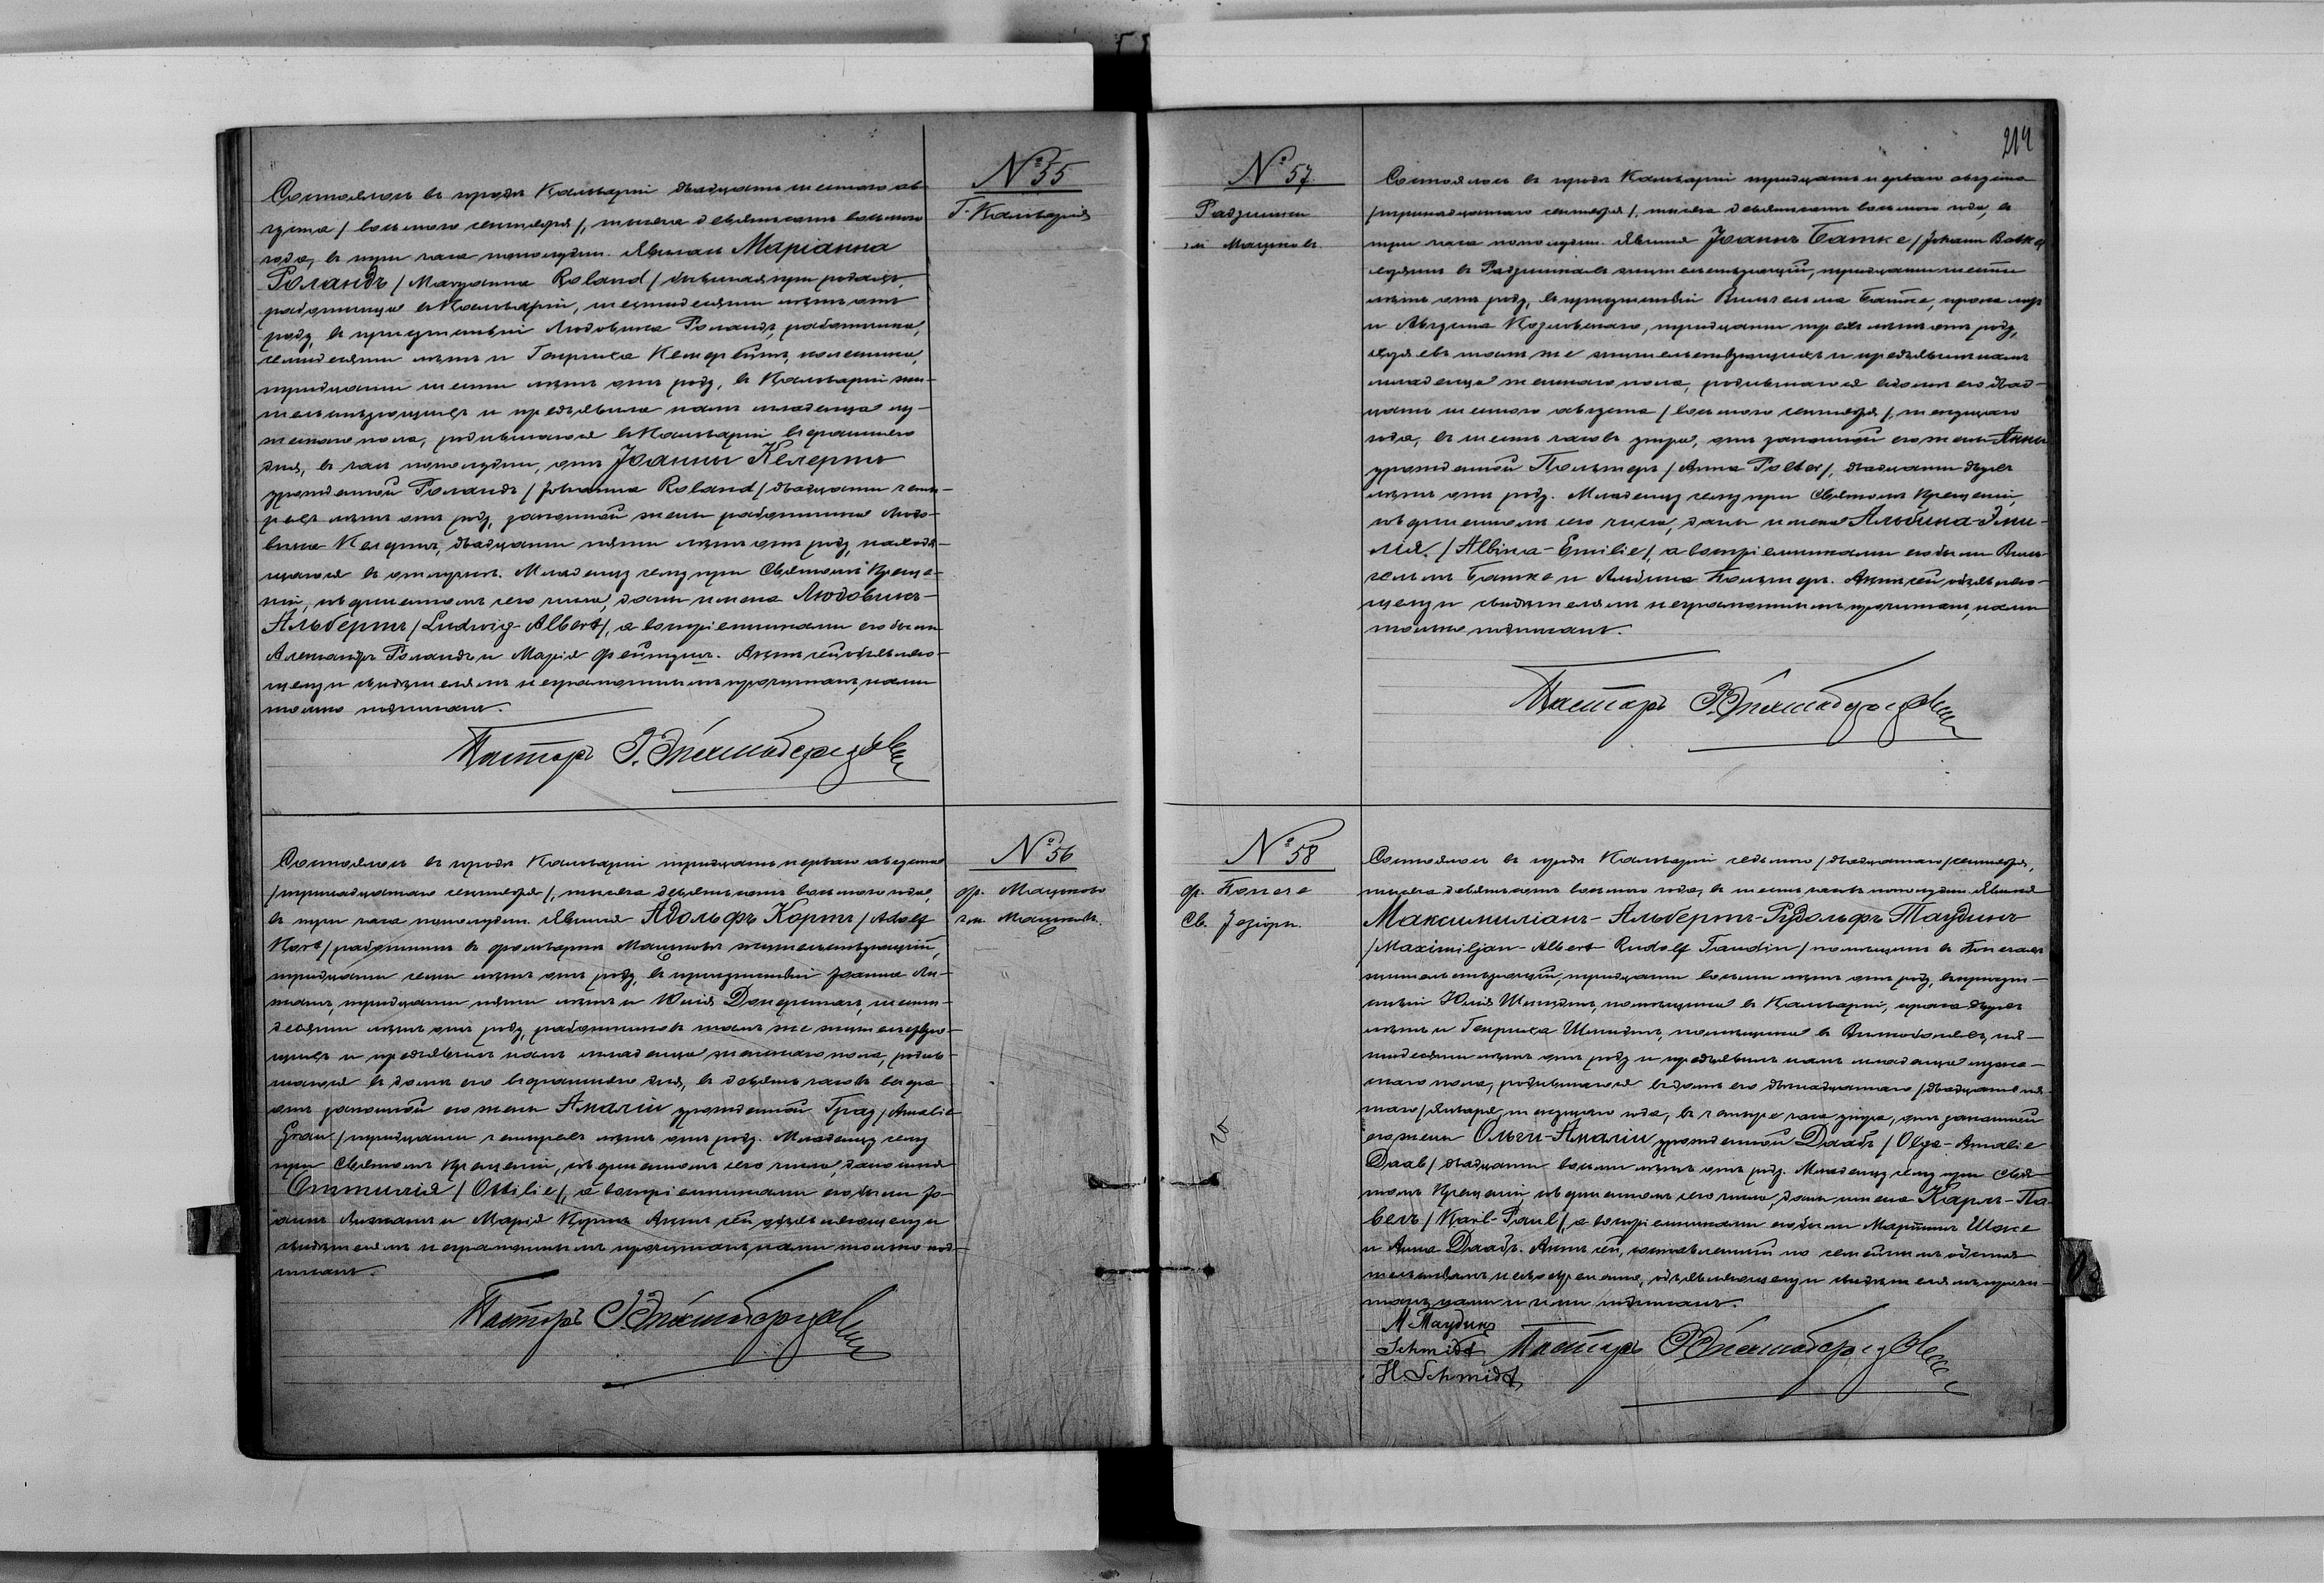 № 55
Г. Кальварія
Состоялось въ городѣ Кальваріи двадцать шестого ав-
густа / восьмого сентября /, тысяча девятьсотъ восьмого
года, въ три часа пополудни. Явилась Маріанна
Роландъ / Maryanna Roland / бывшая при родахъ,
работница въ Кальваріи, шестидесяти лѣтъ отъ
роду, въ присутствіи Людовика Роландъ, работника,
семидесяти лѣтъ и Генриха
тридцати шести лѣтъ отъ роду, въ Кальваріи жи-
тельствующихъ и предъявила намъ младенца му-
жескаго пола, родившагося въ Кальваріи вчерашняго
дня, въ часъ пополудни, отъ Іоанны Келертъ
урожденной Роландъ / Johanna Roland / двадцати четы-
рехъ лѣтъ отъ роду, законной жены работника Людо-
вика Келертъ, двадцати пяти лѣтъ отъ роду, находя-
щагося въ отлучкѣ. Младенцу сему при Святомъ Креще-
ніи, совершенномъ сего числа, даны имена Людовикъ-
Альбертъ / Ludwig-Albert /, а воспріемниками его были
Александръ Роландъ и Марія Актъ сей объявляю-
щему и свидѣтелямъ неграмотнымъ прочитанъ, нами
только подписанъ.
Пасторъ
№ 56
ф. Мацково
гм. Мацковъ.
Состоялось въ городѣ Кальваріи тридцать перваго августа
/ тринадцатаго сентября /, тысяча девятьсотъ восьмого года,
въ три часа пополудни. Явился Адольфъ Кортъ / Adolf
Kort / работникъ въ фольваркѣ Мацковѣ жительствующій,
тридцати семи лѣтъ отъ роду, въ присутствіи Іоанна Ли-
тридцати пяти лѣтъ и Юлія шести-
десяти лѣтъ отъ роду, работниковъ тамъ же жительствую-
щихъ и предъявилъ намъ младенца женскаго пола, родив-
шагося въ домѣ его вчерашняго дня, въ девять часовъ вечера
отъ законной его жены Амаліи урожденной Грау / Amalie
Grau / тридцати четырехъ лѣтъ отъ роду. Младенцу сему
при Святомъ Крещеніи, совершенномъ сего числа, дано имя
Оттилія / Ottilie /, а воспріемниками его были Іо-
аннъ и Марія Актъ сей объявляющему и
свидѣтелямъ неграмотнымъ прочитанъ, нами только под-
писанъ.
Пасторъ
214
№ 57
Радзишки
гм. Мацковъ.
Состоялось въ городѣ Кальваріи тридцать перваго августа
/ тринадцатаго сентября /, тысяча девятьсотъ восьмого года, въ
три часа пополудни. Явился Іоаннъ Батке / Johann Batke /
въ Радзишкахъ жительствующій, тридцати шести
лѣтъ отъ роду, въ присутствіи Вильгельма Батке, сорока
и Августа Козловскаго, тридцати трехъ лѣтъ отъ роду,
тамъ же жительствующихъ и предъявилъ намъ
младенца женскаго пола, родившагося въ домѣ его двад-
цать шестого августа / восьмого сентября /, текущаго
года, въ шесть часовъ утра, отъ законной его жены Анны
урожденной Польтеръ / Anna Polter /, двадцати двухъ
лѣтъ отъ роду. Младенцу сему при Святомъ Крещеніи,
совершенномъ сего числа, даны имена Альбина-Эми-
лія / Albina-Emilie /, а воспріемниками его были Виль-
гельмъ Батке и Альбина Польтеръ. Актъ сей объявляю-
щему и свидѣтелямъ неграмотнымъ прочитанъ, нами
только подписанъ.
Пасторъ
№ 58
ф. Копсѣе
Состоялось въ городѣ Кальваріи седьмого / двадцатаго / сентября,
тысяча девятьсотъ восьмого года, въ шесть часовъ пополудни. Явился
Максимиліанъ-Альбертъ-Рудольфъ Таудинъ
/ Maximiljan-Albert Rudolf Taudin / помѣщикъ въ
жительствующій, тридцати восьми лѣтъ отъ роду, въ присут-
ствіи Юлія Шмидтъ, помѣщика въ Кальваріи, сорока двухъ
лѣтъ и Генриха Шмидтъ, помѣщика въ пя-
тидесяти лѣтъ отъ роду и предъявилъ намъ младенца муже-
скаго пола, родившагося въ домѣ его двѣнадцатаго / двадцать пя-
таго / января, текущаго года, въ четыре часа утра, отъ законной
его жены Ольги-Амаліи урожденной Даабъ / Olga-Amalie
Daab / двадцати восьми лѣтъ отъ роду. Младенцу сему при Свя-
томъ Крещеніи, совершенномъ сего числа, даны имена Карлъ-Па-
велъ / Karl-Paul /, а воспріемниками его были Мартинъ
и Анна Даабъ. Актъ сей, составленный по семейнымъ обстоя-
тельствамъ несвоевременно, объявляющему и свидѣтелямъ прочи-
танъ, нами и ими подписанъ.
М. Таудинъ
Schmidt Пасторъ
H. Schmidt